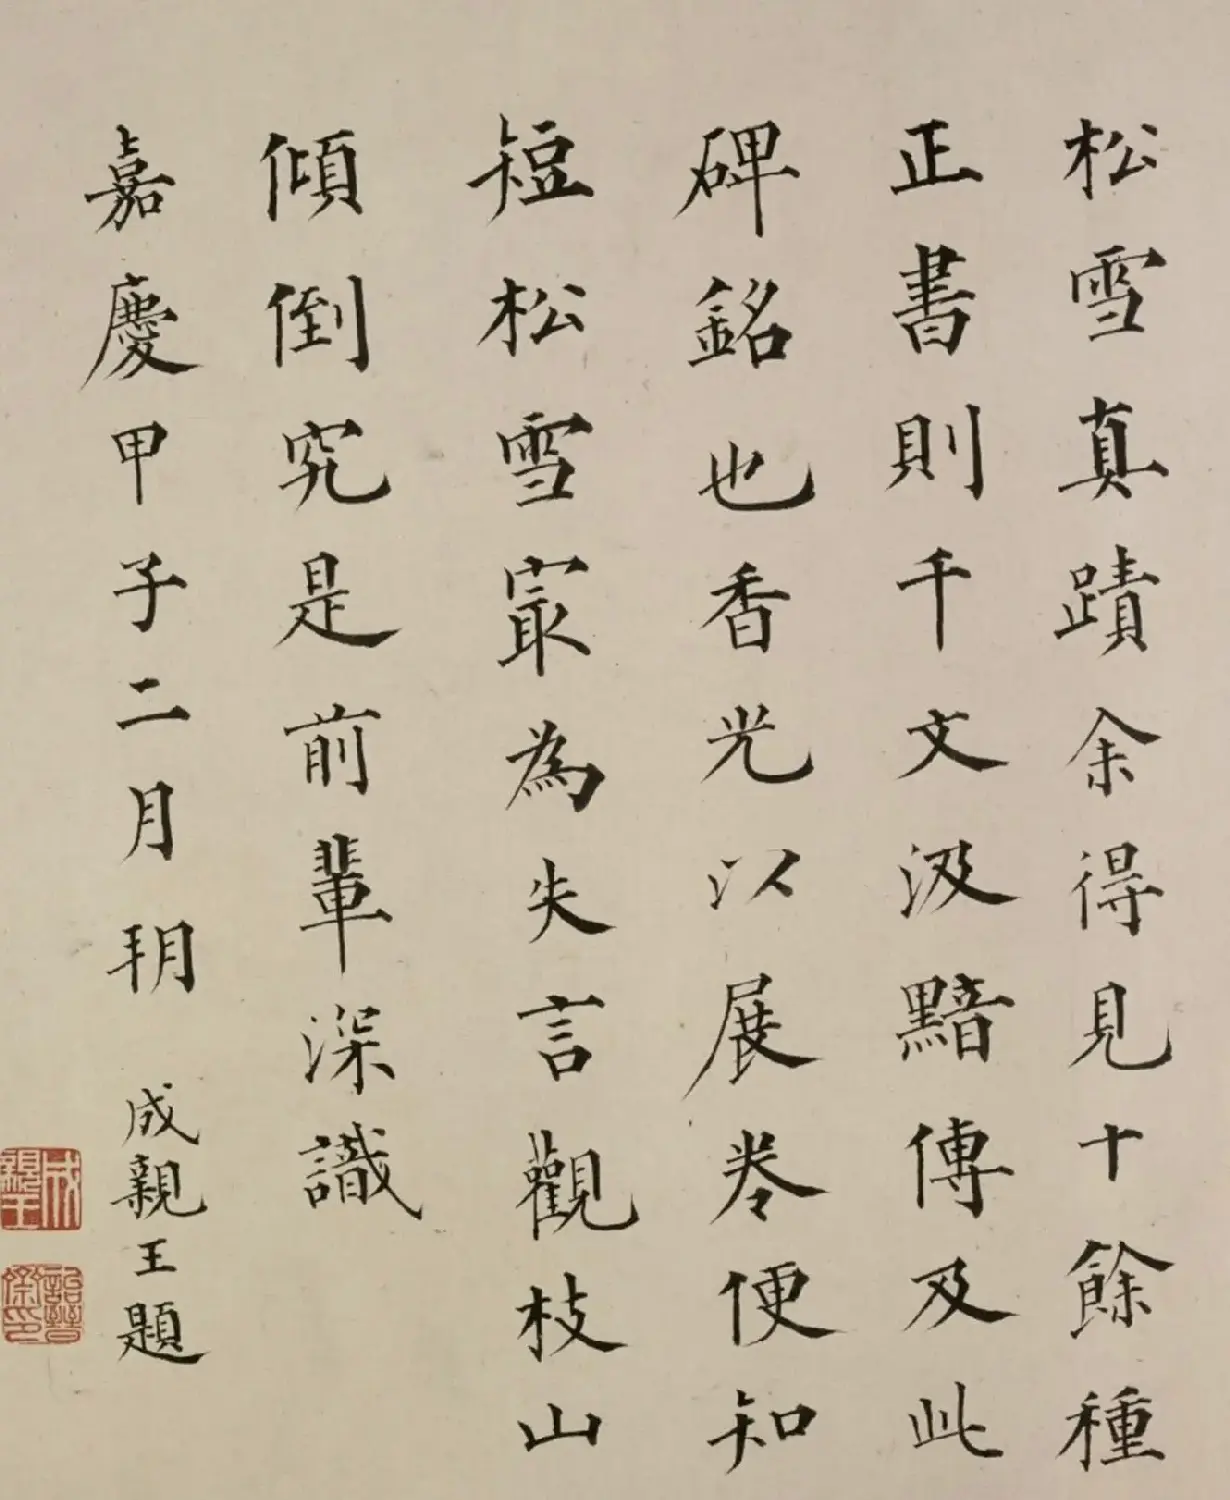 松雪真蹟余得見十餘種
正書則千文汲黯傳及此
碑銘也香光以展卷便知
短松雪冣為失言觀枝山
傾倒究是前輩深識
嘉慶甲子二月朔 成親王題
成親王
詒晉齋印